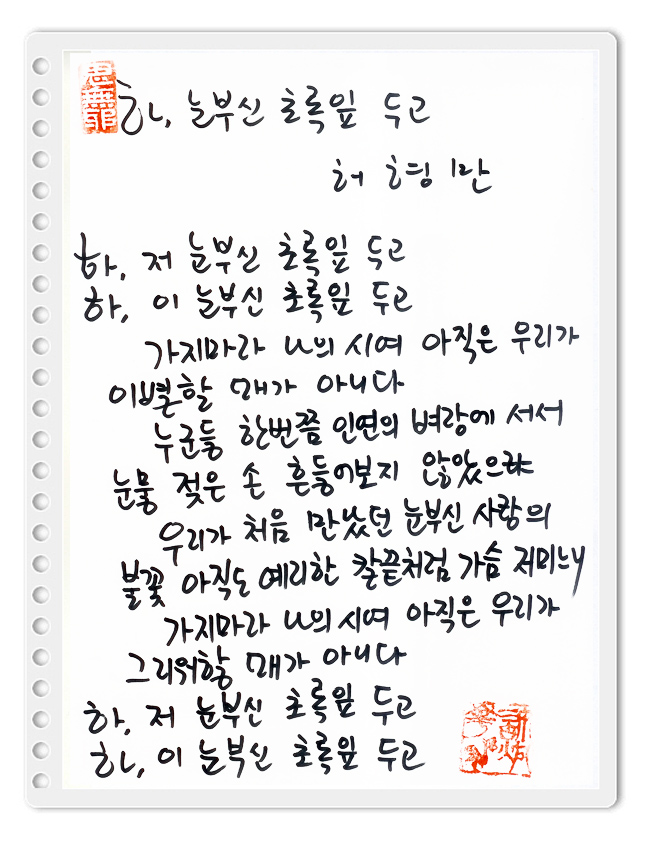 思無邪
하, 눈부신 초록잎 두고
허 형 만
하, 저 눈부신 초록잎 두고
하, 이 눈부신 초록잎 두고
가지마라 나의 시여 아직은 우리가
이별할 때가 아니다
누군들 한번쯤 인연의 벼랑에 서서
눈물 젖은 손 흔들어보지 않았으랴
우리가 처음 만났던 눈부신 사랑의
불꽃 아직도 예리한 칼끝처럼 가슴 저미느니
가지마라 나의 시여 아직은 우리가
그리워할 때가 아니다
하, 저 눈부신 초록잎 두고
하, 이 눈부신 초록잎 두고